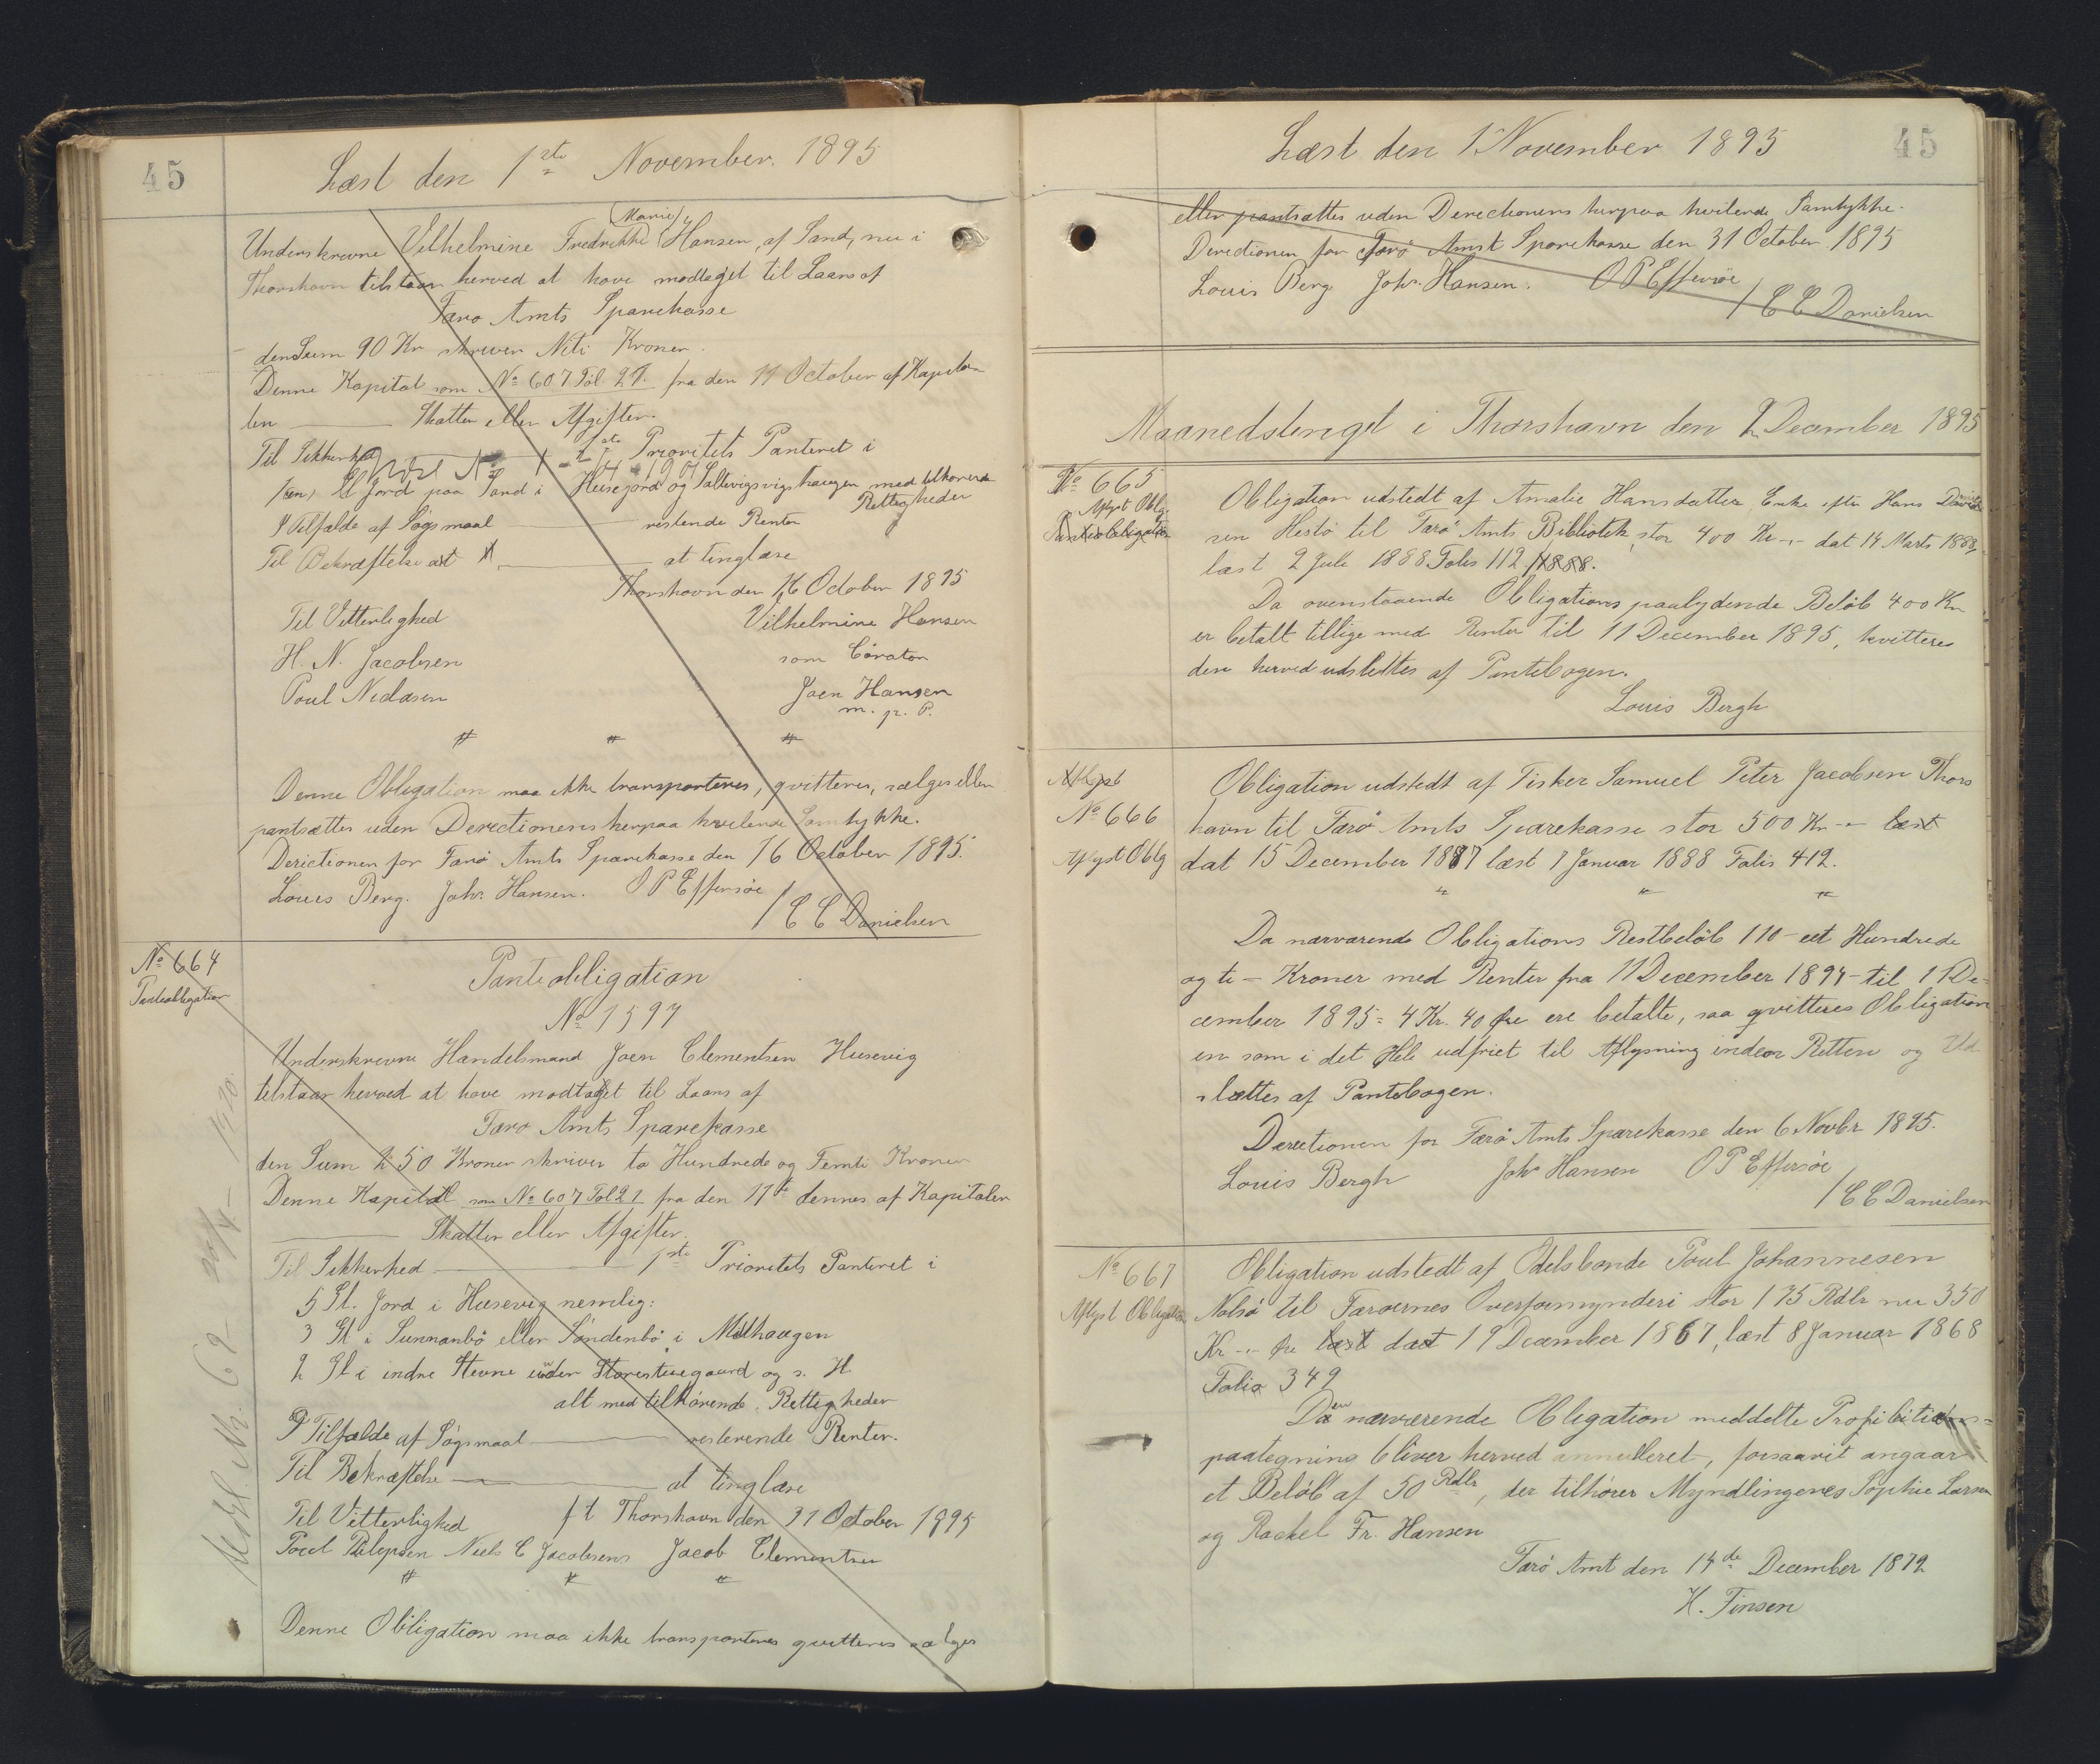 45
Læst den 1ste November. 1895
Underskrevne Vilhelmine Fredrikke (Marie) Hansen, af Sand, nu i
Thorshavn tilstaar herved at have modtaget til Laans af
Færo Amts Sparekasse
den Sum 90 Kr skriver Niti Kroner.
Denne Kapital som No 607 Fol. 21. fra den 11 October af Kapita
len Skatter eller Afgifter.
Til Sikkerhed 1ste Prioritets Panteret i
1 (en) Gl Jord paa Sand i Heiesjord og med tilhørende
Rettigheder
I Tilfælde af Søgsmaal resterende Renter
Til Bekræftelse at tinglæse
Thorshavn den 16 October 1895
Til Vitterlighed Vilhelmine Hansen
H. N. Jacobsen som Curator
Poul Niclasen Joen Hansen
m. p. P.
" " "
Denne Obligation maa ikke transporteres, qvitteres, sælges eller
pantsættes uden Derectionens herpaa hvilende Samtykke.
Derictionen for Færø Amts Sparekasse den 16 October 1895.
Louis Berg. Johs. Hansen. O P Effersøe
/ C C Danielsen
No 664
Panteobligation
Panteobligation
No 1597
Underskrevne Handelsmand Joen Clementsen Husevig
tilstaar herved at have modtaget til Laans af
Færo Amts Sparekasse
den Sum 250 Kroner skriver to Hundrede og Femti Kroner
Denne Kapital som No 607 Fol 21 fra den 11te dennes af Kapitalen
Skatter eller Afgifter.
Til Sikkerhed 1ste Prioritets Panteret i
5 Gl. Jord i Husevig nemlig:
3 Gl i Sunnanbø eller Søndenbø i Midhaugen
2 Gl i indre Stevne under Storestuegaard og s. H.
alt med tilhørende Rettigheder
I Tilfælde af Søgsmaal resterende Renter.
Til Bekræftelse at tinglæse
Til Vitterlighed f t Thorshavn den 31 October 1895
Niels C Jacobsens Jacob Clementsen
" " "
Denne Obligation maa ikke transporteres qvitteres sælges
Nr. 69
45
Læst den 1 November 1895
eller pantsættes uden Derectionens herpaa hvilende Samtykke.
Directionen for Færø Amt Sparekasse den 31 October 1895
Louis Berg Johs. Hansen. O P Effersøe
/ C C Danielsen
Maanedstinget i Thorshavn den 2 December 1895
No 665
Aflyst Oblg.
Panteobligation
Obligation udstedt af Amalie Hansdatter Enke efter Hans David
sen Hestø til Færø Amts Bibliotek stor 400 Kr -"- dat 14 Marts 1888,
læst 2 Juli 1888 Folio 112 1888.
Da ovenstaaende Obligations paalydende Beløb 400 Kr
er betalt tillige med Renter til 11 December 1895, kvitteres
den herved udslettes af Pantebogen.
Louis Bergh
Aflyst
No 666
Aflyst Oblg
Obligation udstedt af Fisker Samuel Peter Jacobsen Thors
havn til Færø Amts Sparekasse stor 500 Kr -"- læst
dat 15 December 1887 læst 7 Januar 1888 Folio 412.
" " "
Da nærværende Obligations Restbeløb 110 - eet Hundrede
og ti - Kroner med Renter fra 11 December 1894 - til 11 De-
cember 1895 = 4 Kr. 40 Øre ere betalte, saa qvitteres Obligation
en som i det Hele udfriet til Aflysning inden Retten og Ud
slættes af Pantebogen.
Derectionen for Færø Amts Sparekasse den 6 Novbr 1895.
Louis Bergh Johs Hansen O P Effersøe
/ C C Danielsen
No 667
Aflyst Obligation
Obligation udstedt af Odelsbonde Poul Johannesen
Nolsø til Færøernes Overformynderi stor 175 Rdlr nu 350
Kr -"- Øre læst dat 19 December 1867, læst 8 Januar 1868
Folio 349
Den nærværende Obligation meddelte Profibitions=
paategning bliver herved annulleret, forsaavit angaar
et Beløb af 50 Rdlr, der tilhører Myndlingenes Sophie Larsen
og Rachel Fr. Hansen
Færø Amt den 14de December 1872
H. Finsen